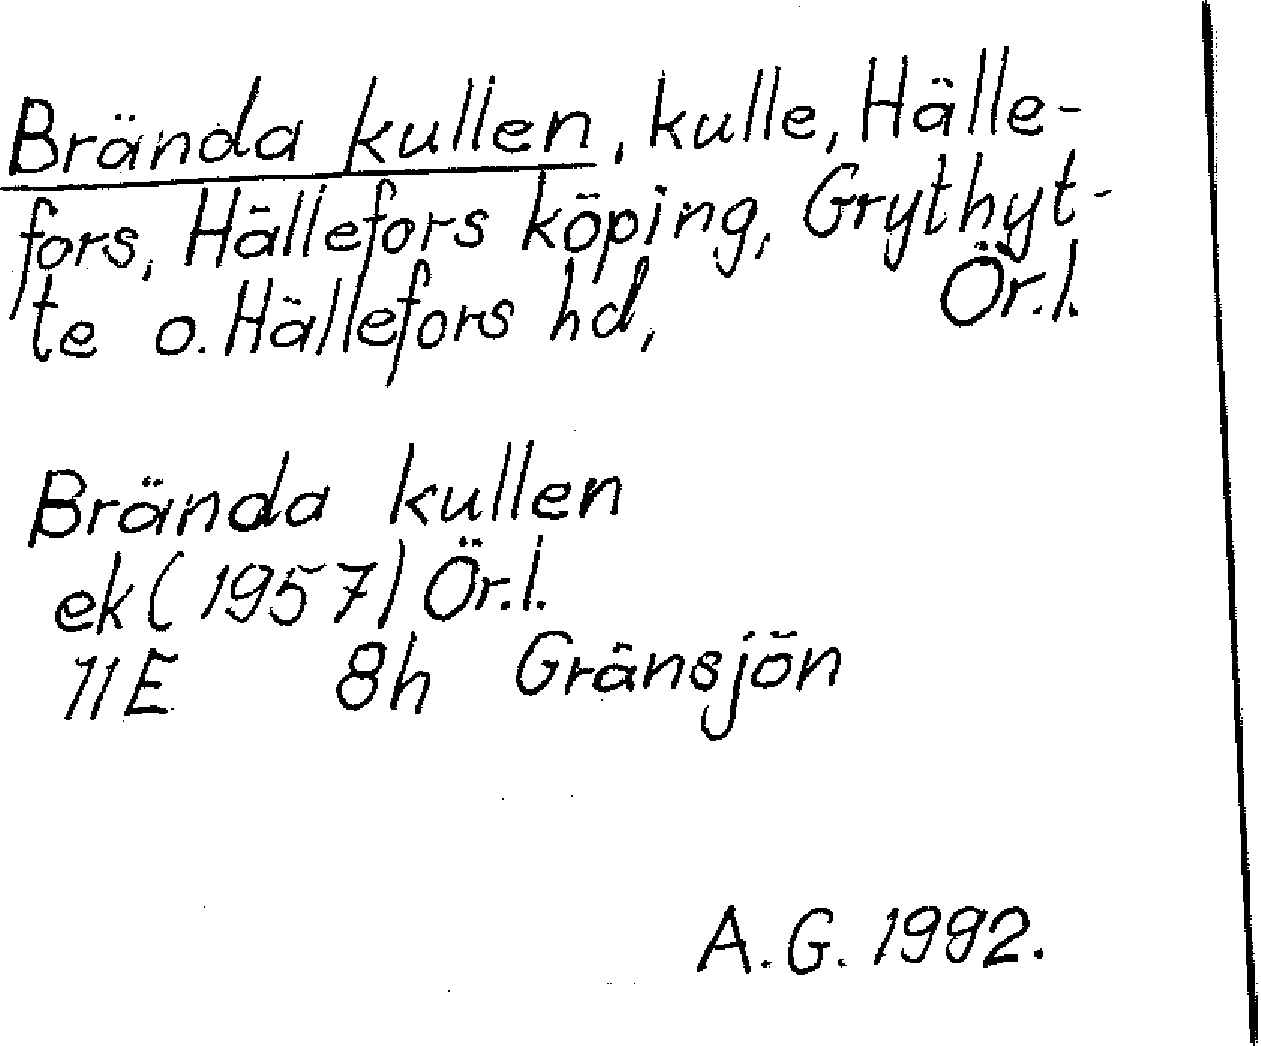 Brända kullen, kulle, Hälle-
fors, Hällefors köping, Grythyt-
te o. Hällefors hd, Ör.l.
Brända kullen
ek (1957) Ör.l.
11E 8h Gränsjön
A.G. 1992.